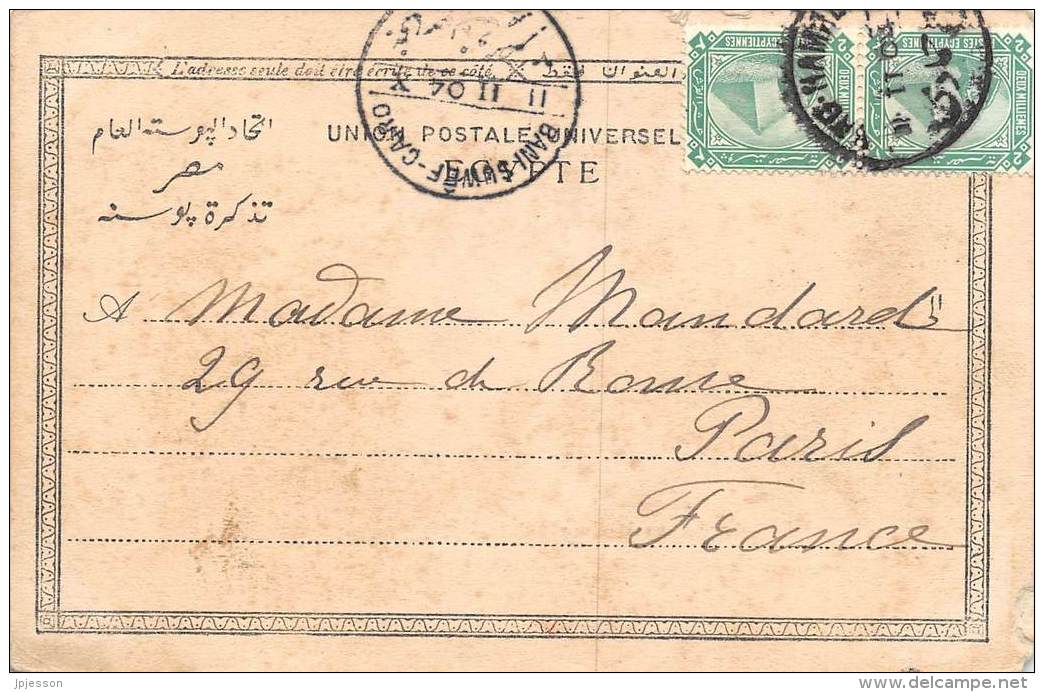 L'adresse seule doit être écrite de ce côté العنوان فقط
اتحاد البوسته العام
مصر
تذكرة بوسته
UNION POSTALE UNIVERSEL
EGYPTE
BANI-SUWÊF-CAIRO
11 II 04
DEUX MILLIEMES
DEUX MILLIEMES
POSTES EGYPTIENNES
A Madame Mandard
29 rue de Rome
Paris
France
jpjesson
delcampe.net